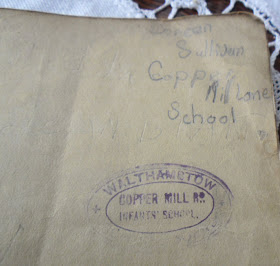 Sullivan
Copper
Mill Lane
School
WALTHAMSTOW
COPPER MILL RD
INFANTS' SCHOOL.